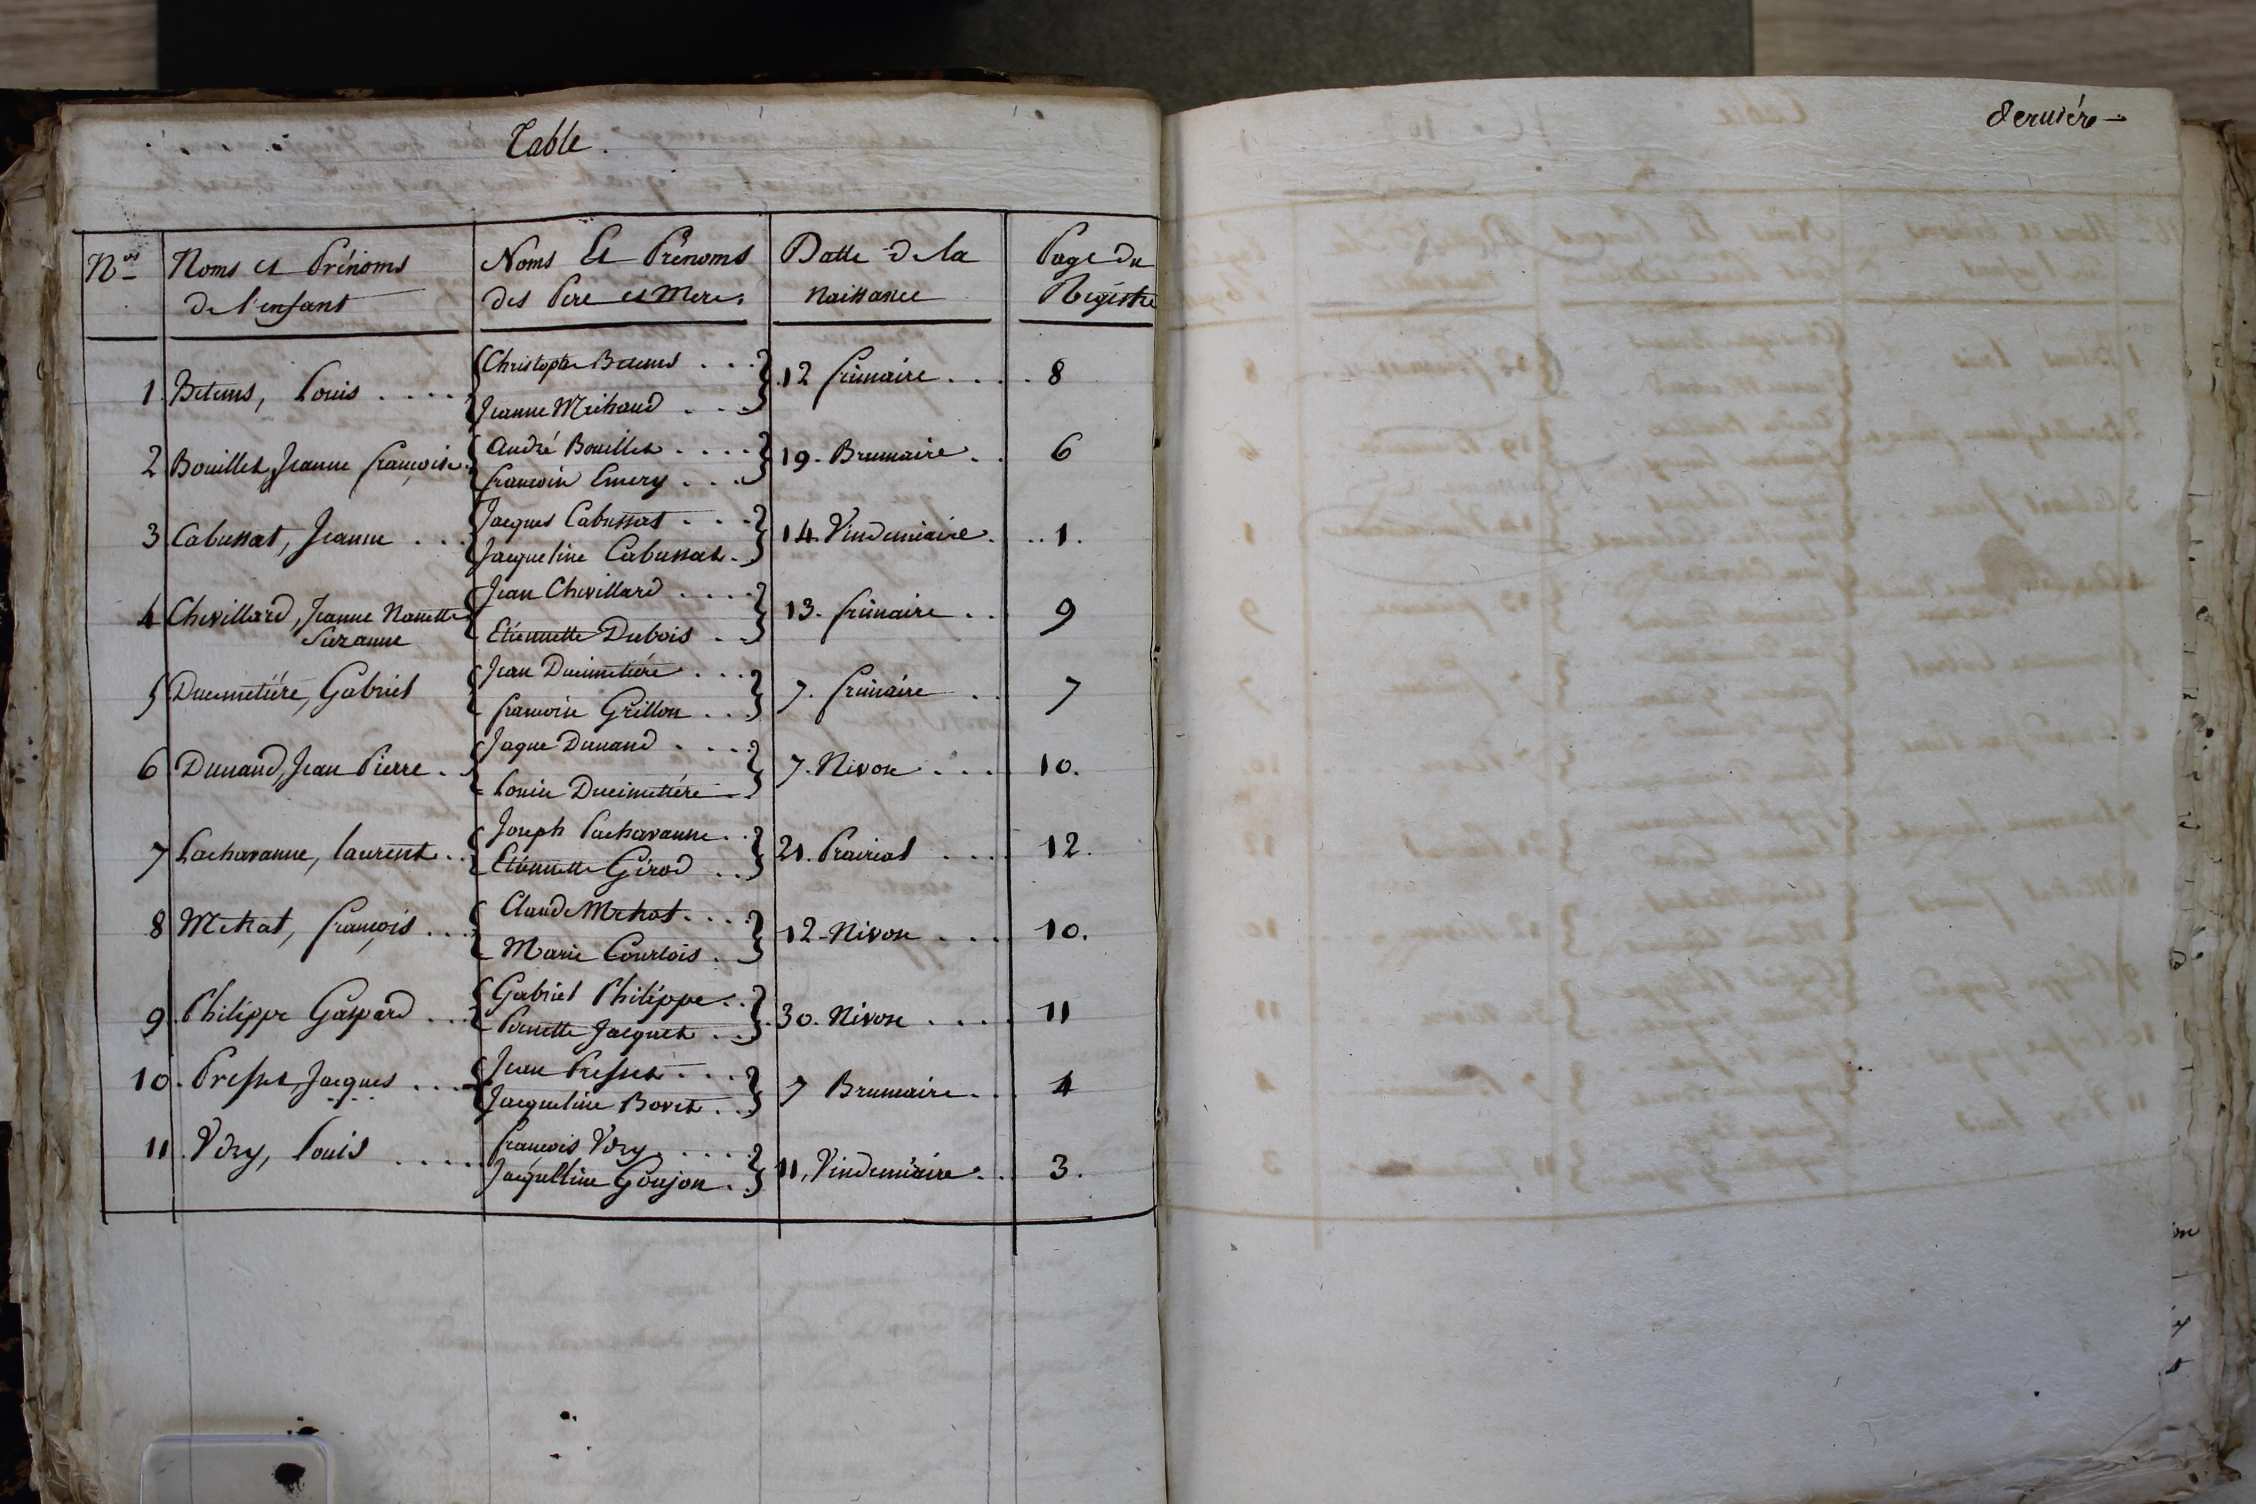 Table.
dernière
Nos Noms et Prénoms Noms Et Prénoms Datte de la Page du
de l'enfant des Pere et Mere. naissance Régistre
Christophe Betems
1 Betems, Louis 12 frimaire 8
Jeanne Michaud
André Bouillet
2 Bouillet, Jeanne françoise 19. Brumaire 6
françoise Emery
Jacques Cabussat
3 Cabussat, Jeanne 14 Vindemiaire 1.
Jacqueline Cabussat
Jean Chevillard
4 Chevillard, Jeanne Nanette 13. frimaire 9
Suzanne Etiennette Dubois
Jean Ducimetiére
5 Ducimetiére, Gabriel 7. frimaire 7
françoise Grillon
Jaque Dunand
6 Dunand, Jean Pierre 7. Nivose 10.
Louise Ducimetiére
Joseph Lacharanne
7 Lacharanne, laurent 21. Prairial 12.
Etiennette Girod
Claude Methat
8 Methat, françois 12. Nivose 10.
Marie Courtois
Gabriel Philippe
9 Philippe Gaspard 30. Nivose 11
Pernette Jacquet
Jean Presset
10. Presset, Jacques 7 Brumaire 4
Jacqueline Bovet
françois Vdry
11 Vdry, Louis 11, Vindemiaire 3.
Jacqueline Goujon